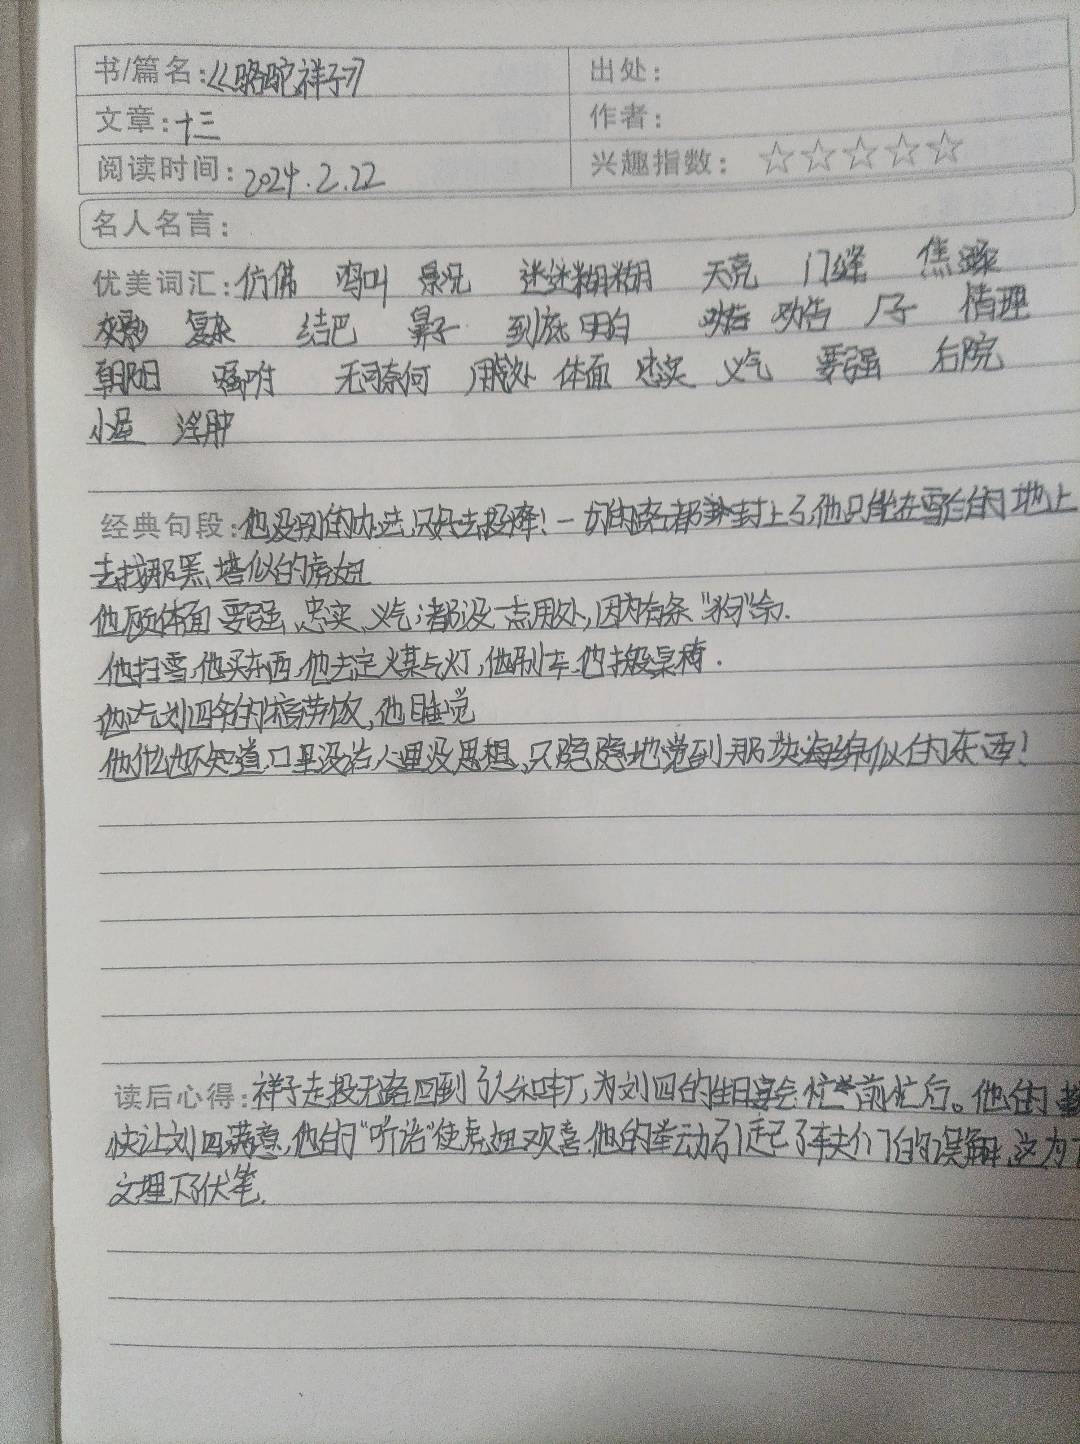 书/篇名：《骆驼祥子》
出处：
文章：十三
作者：
阅读时间：2024.2.22
兴趣指数：☆☆☆☆☆
名人名言：
优美词汇：仿佛 鸣叫 景况 迷迷糊糊 天亮 门缝 焦躁
复杂 结巴 鼻子 到底 明白 劝告 厂子 情理
朝阳 嘱咐 无可奈何 用处 体面 忠实 义气 要强 后院
小屋 浮肿
经典句段：他没别的办法，只好去投降！一切的路都封上了，他只能在雪白的地上
去找那黑塔似的虎妞
他顾体面、要强、忠实、义气；都没一点用处，因为有条“狗”命.
他扫雪，他买东西，他去定煤气灯，他刷车，他搬桌椅.
他吃刘四爷的犒劳饭，他睡觉
他什么也不知道，口里没话，心里没思想，只隐隐地觉到那块海绵似的东西！
读后心得：祥子走投无路回到了人和车厂，为刘四的生日宴会忙前忙后。他的
快让刘四满意，他的“听话”使虎妞欢喜.他的举动引起了车夫们的误解，这为下
文埋下了伏笔.